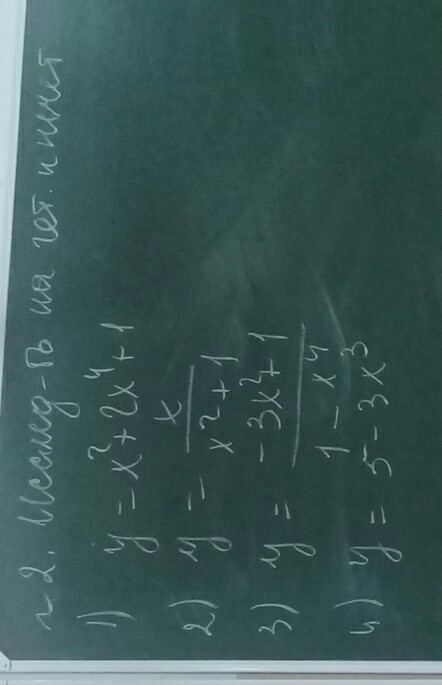 № 2. Исслед-ть на чёт. и нечёт
1) y = x² + 2x⁴ + 1
2) y = x / (x² + 1)
3) y = (-3x² + 1) / (1 - x⁴)
4) y = 5 - 3x³